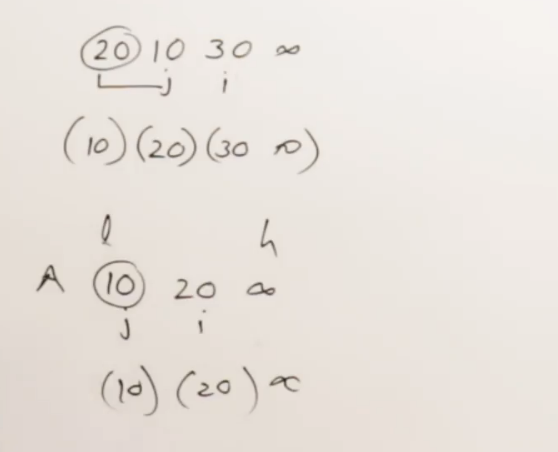 20 10 30 ∞
j i
(10) (20) (30 ∞)
l h
A 10 20 ∞
j i
(10) (20) ∞